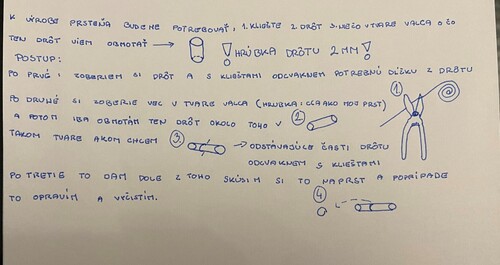 K VÝROBE PRSTEŇA BUDEME POTREBOVAŤ, 1. KLIEŠTE 2. DRÔT 3. NIEČO V TVARE VALCA O ČO
TEN DRÔT VIEM OBMOTAŤ → ! HRÚBKA DRÔTU 2MM !
POSTUP:
PO PRVÉ: ZOBERIEM SI DRÔT A S KLIEŠTAMI ODCVAKNEM POTREBNÚ DĹŽKU Z DRÔTU
1
PO DRUHÉ SI ZOBERIE VEC V TVARE VALCA (HRUBKA: CCA AKO MOJ PRST)
A POTOM IBA OBMOTÁM TEN DRÔT OKOLO TOHO V 2
TAKOM TVARE AKOM CHCEM 3. → ODSTÁVAJÚCE ČASTI DRÔTU
ODCVAKNEM S KLIEŠTAMI
PO TRETIE TO DÁM DOLE Z TOHO SKÚSIM SI TO NA PRST A POPRÍPADE
4
TO OPRAVÍM A VYČISTÍM.